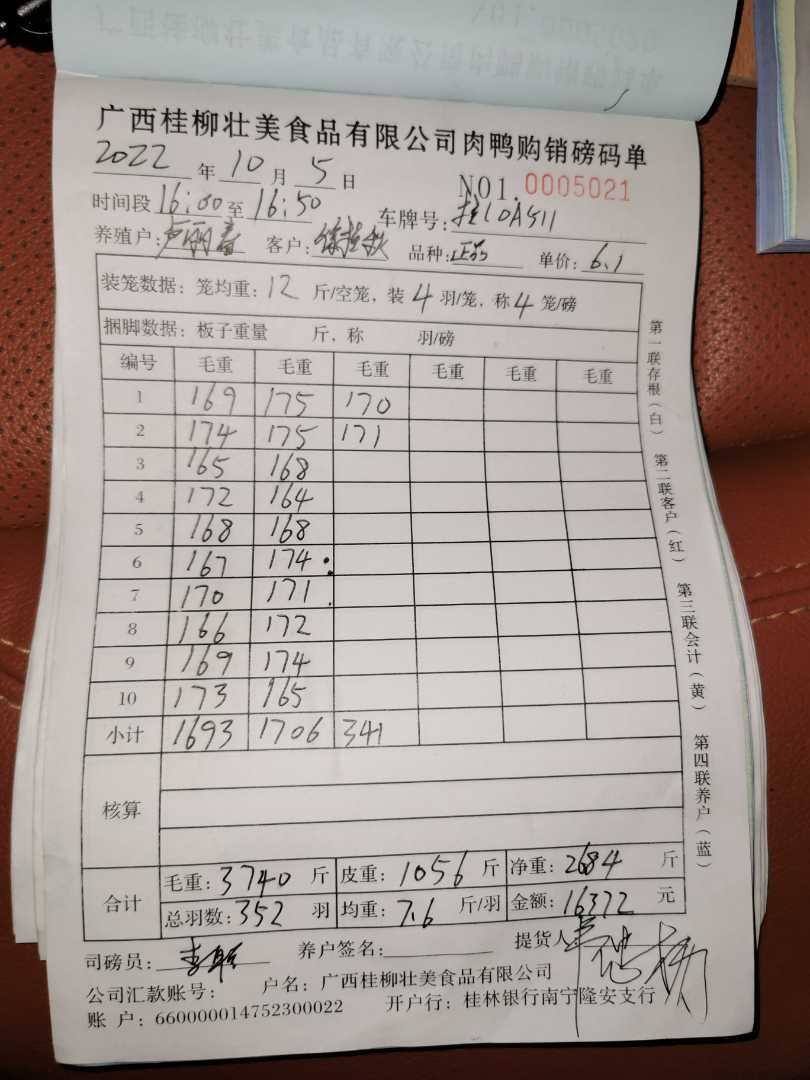 广西桂柳壮美食品有限公司肉鸭购销磅码单
2022 年 10 月 5 日 NO1. 0005021
时间段 16:00 至 16:50 车牌号: 桂LDA511
养殖户: 卢丽春 客户: 徐桂秋 品种: 正品 单价: 6.1
装笼数据: 笼均重: 12 斤/空笼, 装 4 羽/笼, 称 4 笼/磅
捆脚数据: 板子重量 斤, 称 羽/磅
编号 毛重 毛重 毛重 毛重 毛重 毛重
1 169 175 170
2 174 175 171
3 165 168
4 172 164
5 168 168
6 167 174
7 170 171
8 166 172
9 169 174
10 173 165
小计 1693 1706 341
核算
合计 毛重: 3740 斤 皮重: 1056 斤 净重: 2684 斤
总羽数: 352 羽 均重: 7.6 斤/羽 金额: 16372 元
司磅员: 养户签名: 提货人
公司汇款账号: 户名: 广西桂柳壮美食品有限公司
账 户: 660000014752300022 开户行: 桂林银行南宁隆安支行
第一联存根(白) 第二联客户(红) 第三联会计(黄) 第四联养户(蓝)